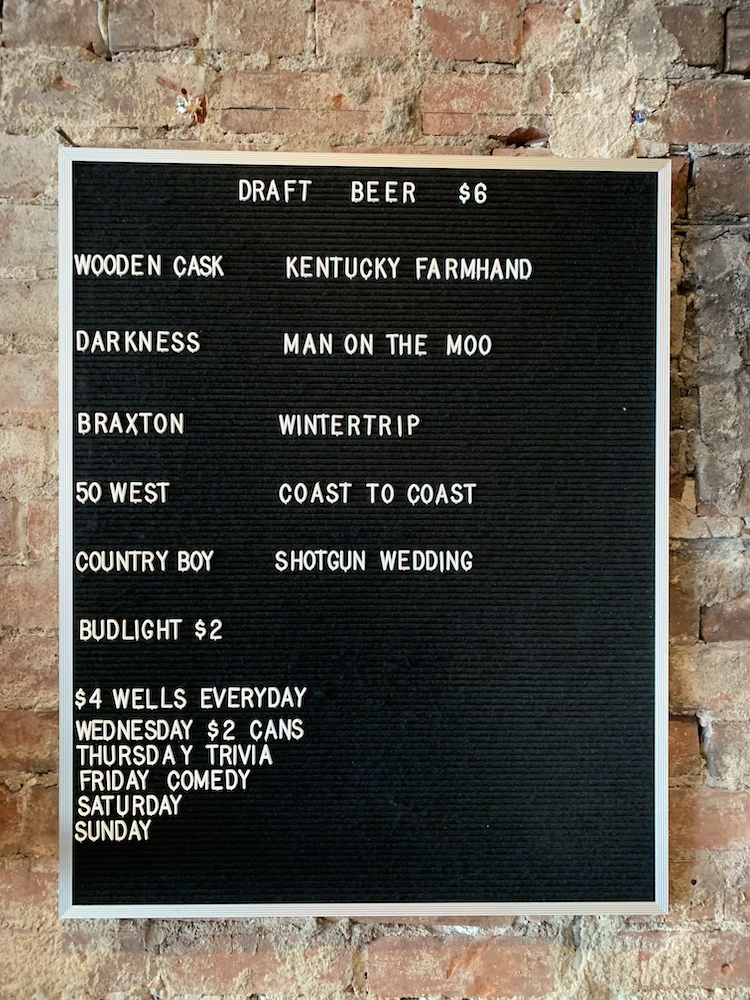 DRAFT BEER $6
WOODEN CASK KENTUCKY FARMHAND
DARKNESS MAN ON THE MOO
BRAXTON WINTERTRIP
50 WEST COAST TO COAST
COUNTRY BOY SHOTGUN WEDDING
BUDLIGHT $2
$4 WELLS EVERYDAY
WEDNESDAY $2 CANS
THURSDAY TRIVIA
FRIDAY COMEDY
SATURDAY
SUNDAY